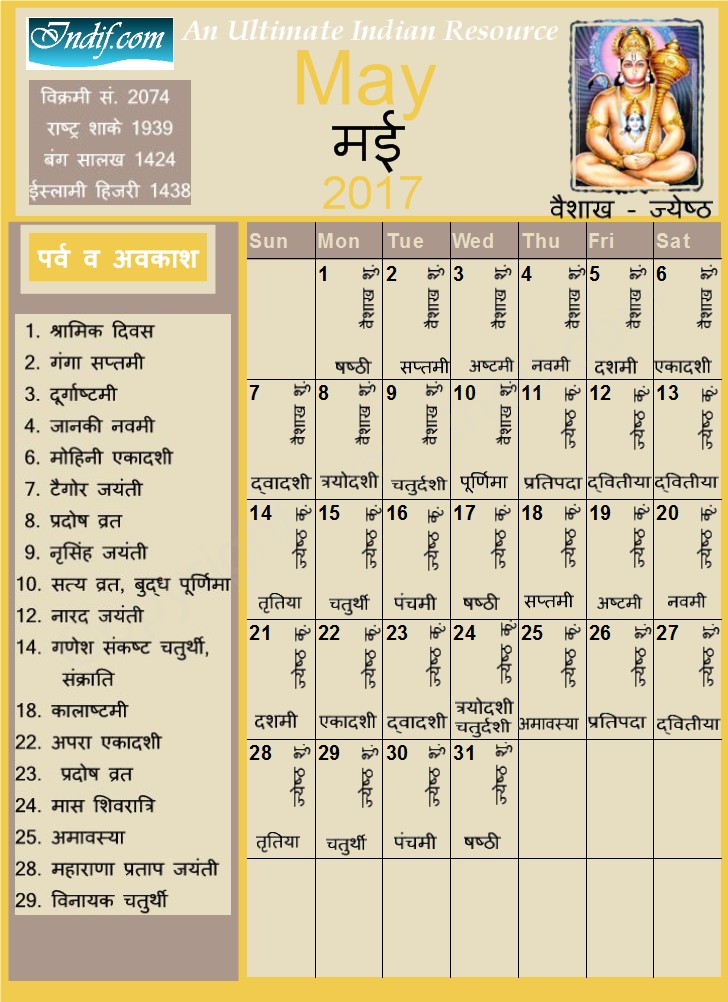 Indif.com
An Ultimate Indian Resource
May
मई
2017
विक्रमी सं. 2074
राष्ट्र शाके 1939
बंग सालख 1424
ईस्लामी हिजरी 1438
वैशाख - ज्येष्ठ
पर्व व अवकाश
1. श्रामिक दिवस
2. गंगा सप्तमी
3. दूर्गाष्टमी
4. जानकी नवमी
6. मोहिनी एकादशी
7. टैगोर जयंती
8. प्रदोष व्रत
9. नृसिंह जयंती
10. सत्य व्रत, बुद्ध पूर्णिमा
12. नारद जयंती
14. गणेश संकष्ट चतुर्थी,
संक्राति
18. कालाष्टमी
22. अपरा एकादशी
23. प्रदोष व्रत
24. मास शिवरात्रि
25. अमावस्या
28. महाराणा प्रताप जयंती
29. विनायक चतुर्थी
Sun Mon Tue Wed Thu Fri Sat
1 वैशाख शु. 2 वैशाख शु. 3 वैशाख शु. 4 वैशाख शु. 5 वैशाख शु. 6 वैशाख शु.
षष्ठी सप्तमी अष्टमी नवमी दशमी एकादशी
7 वैशाख शु. 8 वैशाख शु. 9 वैशाख शु. 10 वैशाख शु. 11 ज्येष्ठ कृ. 12 ज्येष्ठ कृ. 13 ज्येष्ठ कृ.
द्वादशी त्रयोदशी चतुर्दशी पूर्णिमा प्रतिपदा द्वितीया द्वितीया
14 ज्येष्ठ कृ. 15 ज्येष्ठ कृ. 16 ज्येष्ठ कृ. 17 ज्येष्ठ कृ. 18 ज्येष्ठ कृ. 19 ज्येष्ठ कृ. 20 ज्येष्ठ कृ.
तृतिया चतुर्थी पंचमी षष्ठी सप्तमी अष्टमी नवमी
21 ज्येष्ठ कृ. 22 ज्येष्ठ कृ. 23 ज्येष्ठ कृ. 24 ज्येष्ठ कृ. 25 ज्येष्ठ कृ. 26 ज्येष्ठ शु. 27 ज्येष्ठ शु.
दशमी एकादशी द्वादशी त्रयोदशी चतुर्दशी अमावस्या प्रतिपदा द्वितीया
28 ज्येष्ठ शु. 29 ज्येष्ठ शु. 30 ज्येष्ठ शु. 31 ज्येष्ठ शु.
तृतिया चतुर्थी पंचमी षष्ठी